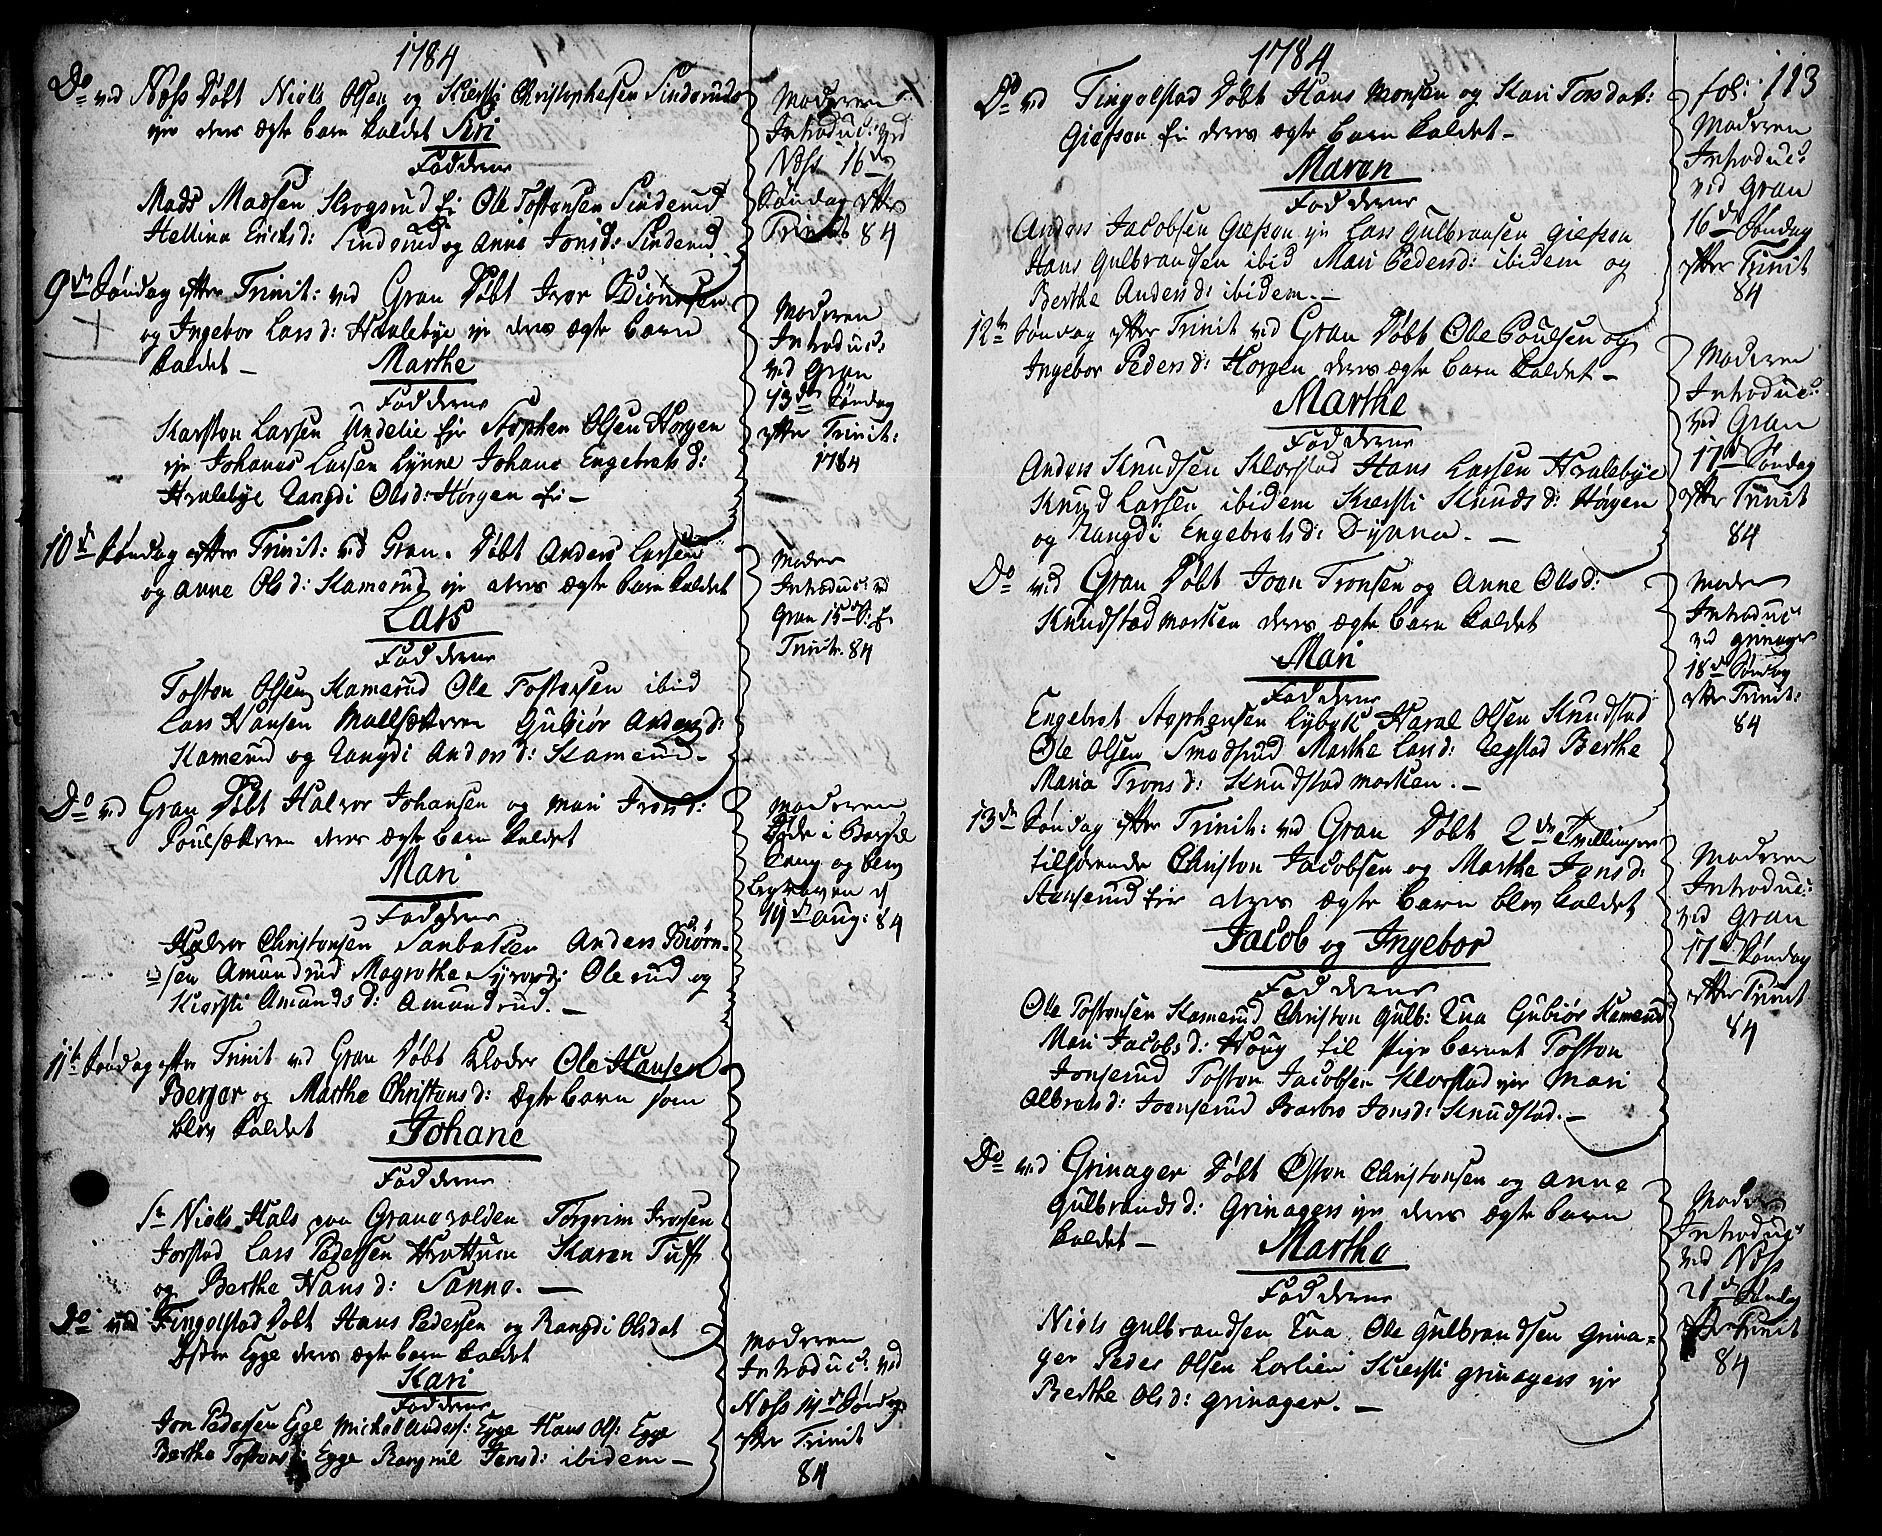 1784
Do ved Næss Døbt Niels Olsen og Kiersti Christophersen Sinderuds
eje deres ægte barn kaldet Siri
Fadderne
Mads Madsen Skrogsrud ej Ole Tostensen Sinderud
Hellina Ericksd: Sinderud og Anne Jonsd: Sinderud
Moderen
Introduc: ved
Næss 16de
Søndag efter
Trinit 84
9de Søndag efter Trinit: ved Gran Døbt Iver Biørnsen
og Ingebor Larsd: Hvalebye eje deres ægte barn
kaldet –
Marthe
Fadderne
Karsten Larsen Undelie eje Stephen Olsen Horgen
eje Johanes Larsen Lynne Johane Engebretsd:
Hvalebye Rangdi Olsd: Horgen ej –
Moderen
Introduc:
ved Gran
13de Søndag
efter Trinit:
1784
10de Søndag efter Trinit: ved Gran. Døbt Anders Larsen
og Anne Olsd: Kamerud eje deres ægte barn kaldet
Lars
Fadderne
Tosten Olsen Kamerud Ole Tostensen ibid
Lars Hansen Mallsætteren Gubiør Andersd:
Kamerud og Rangdi Andersd: Kamerud.
Moder
Introduc: ved
Gran 15de S: e:
Trinit. 84
Do ved Gran Døbt Halvor Johansen og Mari Iversd:
Poulsætteren deres ægte barn kaldet
Mari
Fadderne
Halvor Christensen Sanbakken Anders Biørn-
sen Amundrud Magrethe Syversd: Olerud og
Kiersti Amundsd: Amundrud. –
Moderen
Døde i Barsel
Seng og blev
begraven d
19de Aug: 84
11te Søndag efter Trinit ved Gran Døbt Kloder Ole Hansen
Berger og Marthe Christensd: ægte barn som
blev kaldet
Johane
Fadderne
Sr Niels Hals paa Granavolden Torgrim Iversen
Jorstad Lars Pedersen Hvattum Karen Tufft
og Berthe Hansd: Sanne. –
Do ved Tingelstad Døbt Hans Pedersen og Rangdi Olsdat
Øster Egge deres ægte barn kaldet
Kari
Fadderne
Jon Pedersen Egge Michel Anders: Egge Hans Ols: Egge
Berthe Tostensd: Egge Rangnil Jensd: ibidem –
Moderen
Introduc: ved
Næss 14de Søndag
efter Trinit
84
1784
fol: 113
Do ved Tingelstad Døbt Hans Monsen og Kari Torsdat:
Giefsen ej deres ægte barn kaldet –
Maren
Fadderne
Anders Jacobsen Giefsen eje Lars Gulbrandsen Giefsen
Hans Gulbrandsen ibid Mari Pedersd: ibidem og
Berthe Andersd: ibidem. –
Moderen
Introduc:
ved Gran
16de Søndag
efter Trinit
84
12te Søndag efter Trinit ved Gran Døbt Ole Poulsen og
Ingebor Pedersd: Horgen deres ægte barn kaldet –
Marthe
Fadderne
Anders Knudsen Klevstad Hans Larsen Hvalebye
Knud Larsen ibidem Kiersti Knudsd: Horgen
og Rangdi Engebretsd: Dynna. –
Moderen
Introduc:
ved Gran
17de Søndag
efter Trinit
84
Do ved Gran Døbt Joen Tronsen og Anne Olsd:
Knudstad morken deres ægte barn kaldet
Mari
Fadderne
Engebret Stephensen Lybek Haral Olsen Knudstad
Ole Olsen Smedsrud Marthe Larsd: Egstad Berthe
Maria Tronsd: Knudstad morken. –
Moder
Introduc
ved Grinager
18de Søndag
efter Trinit:
84
13de Søndag efter Trinit: ved Gran Døbt 2de Tvillinger
tilhørende Christen Jacobsen og Marthe Jensd:
Aanserud eje deres ægte barn blev kaldet
Jacob og Ingebor
Fadderne
Ole Tostensen Kamerud Christen Gulb: Rua Gubiør Kamerud
Mari Jacobsd: Houg til Pige barnet Tosten
Jonserud Tosten Jacobsen Klevstad eje Mari
Olbretsd: Joenserud Barbro Jonsd: Knudstad. –
Moderen
Introduc:
ved Gran
17de Søndag
efter Trinit
84
Do ved Grinager Døbt Østen Christensen og Anne
Gulbrandsd: Grinagers eje deres ægte barn
kaldet –
Marthe
Fadderne
Niels Gulbrandsen Rua Ole Gulbrandsen Grina-
ger Peder Olsen Lorlien Kiersti Grinagers eje
Berthe Olsd: Grinager. –
Moder
Introduc:
ved Næss
21de Søndag
efter Trinit
84